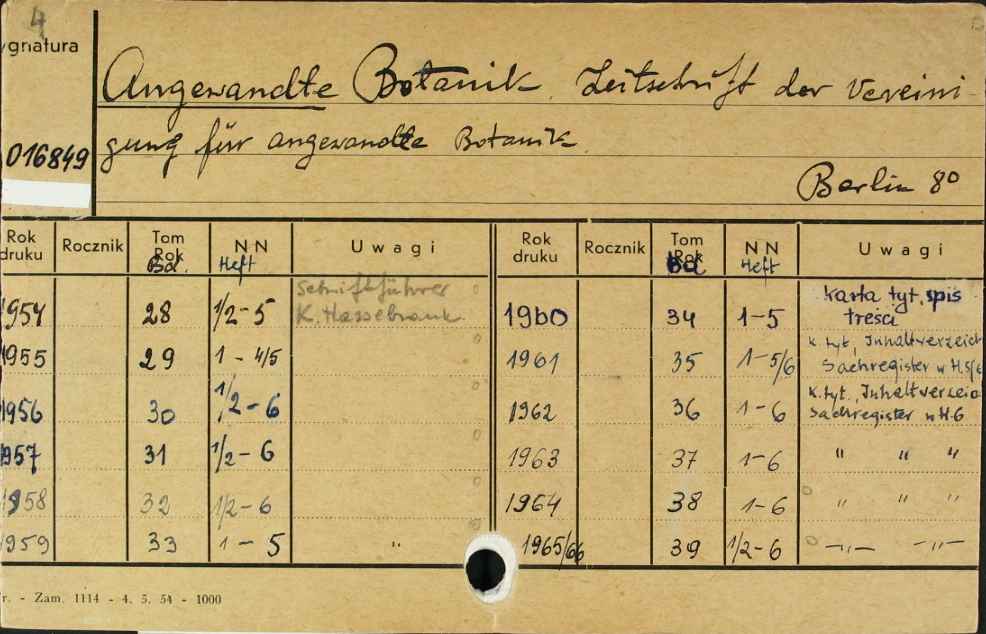 4
ygnatura
Angewandte Botanik. Zeitschrift der Vereini-
gung für angewandte Botanik.
016849
Berlin 8°
Rok druku Rocznik Tom Rok Bd. NN Heft Uwagi Rok druku Rocznik Tom Rok Bd NN Heft Uwagi
1954 28 1/2-5 Schriftführer K. Hassebrauk. 1960 34 1-5 karta tyt, spis treści
1955 29 1-4/5 1961 35 1-5/6 k. tyt, Inhaltverzeich Sachregister w H.5/6
1956 30 1/2-6 1962 36 1-6 k. tyt., Inhaltverzeic Sachregister w H.6
1957 31 1/2-6 1963 37 1-6 " " "
1958 32 1/2-6 1964 38 1-6 " " "
1959 33 1-5 " 1965/66 39 1/2-6 -"- -"-
r. - Zam. 1114 - 4. 5. 54 - 1000